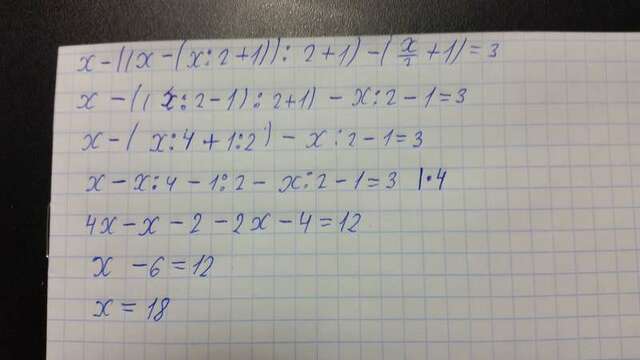 x-((x-(x:2+1)):2+1)-(x/2+1)=3
x-((x:2-1):2+1)-x:2-1=3
x-(x:4+1:2)-x:2-1=3
x-x:4-1:2-x:2-1=3 |·4
4x-x-2-2x-4=12
x-6=12
x=18